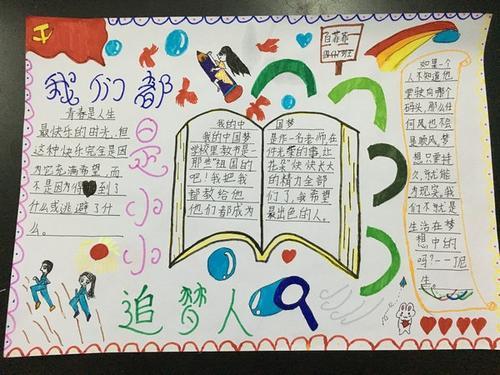 我们都
是
小小
追梦人
青春是人生
最快乐的时光,但
这种快乐完全是因
为它充满希望,而
不是因为得到了
什么或逃避了什
么。
我的中国梦
我的中国梦是
学校里教书是一
那些"祖国的
吧!我把我
都教给他
他们都成为
是作一名老师在
件光荣的事,让
花朵"快快长大
的精力全部
们了,我希望
最出色的人。
如果一个
人不知道他
要驶向哪个
码头,那么任
何风也不会
是顺风梦
想只要持
久,就能
为现实。我
们不就是
生活在梦
想中的
吗?一一丁尼
生